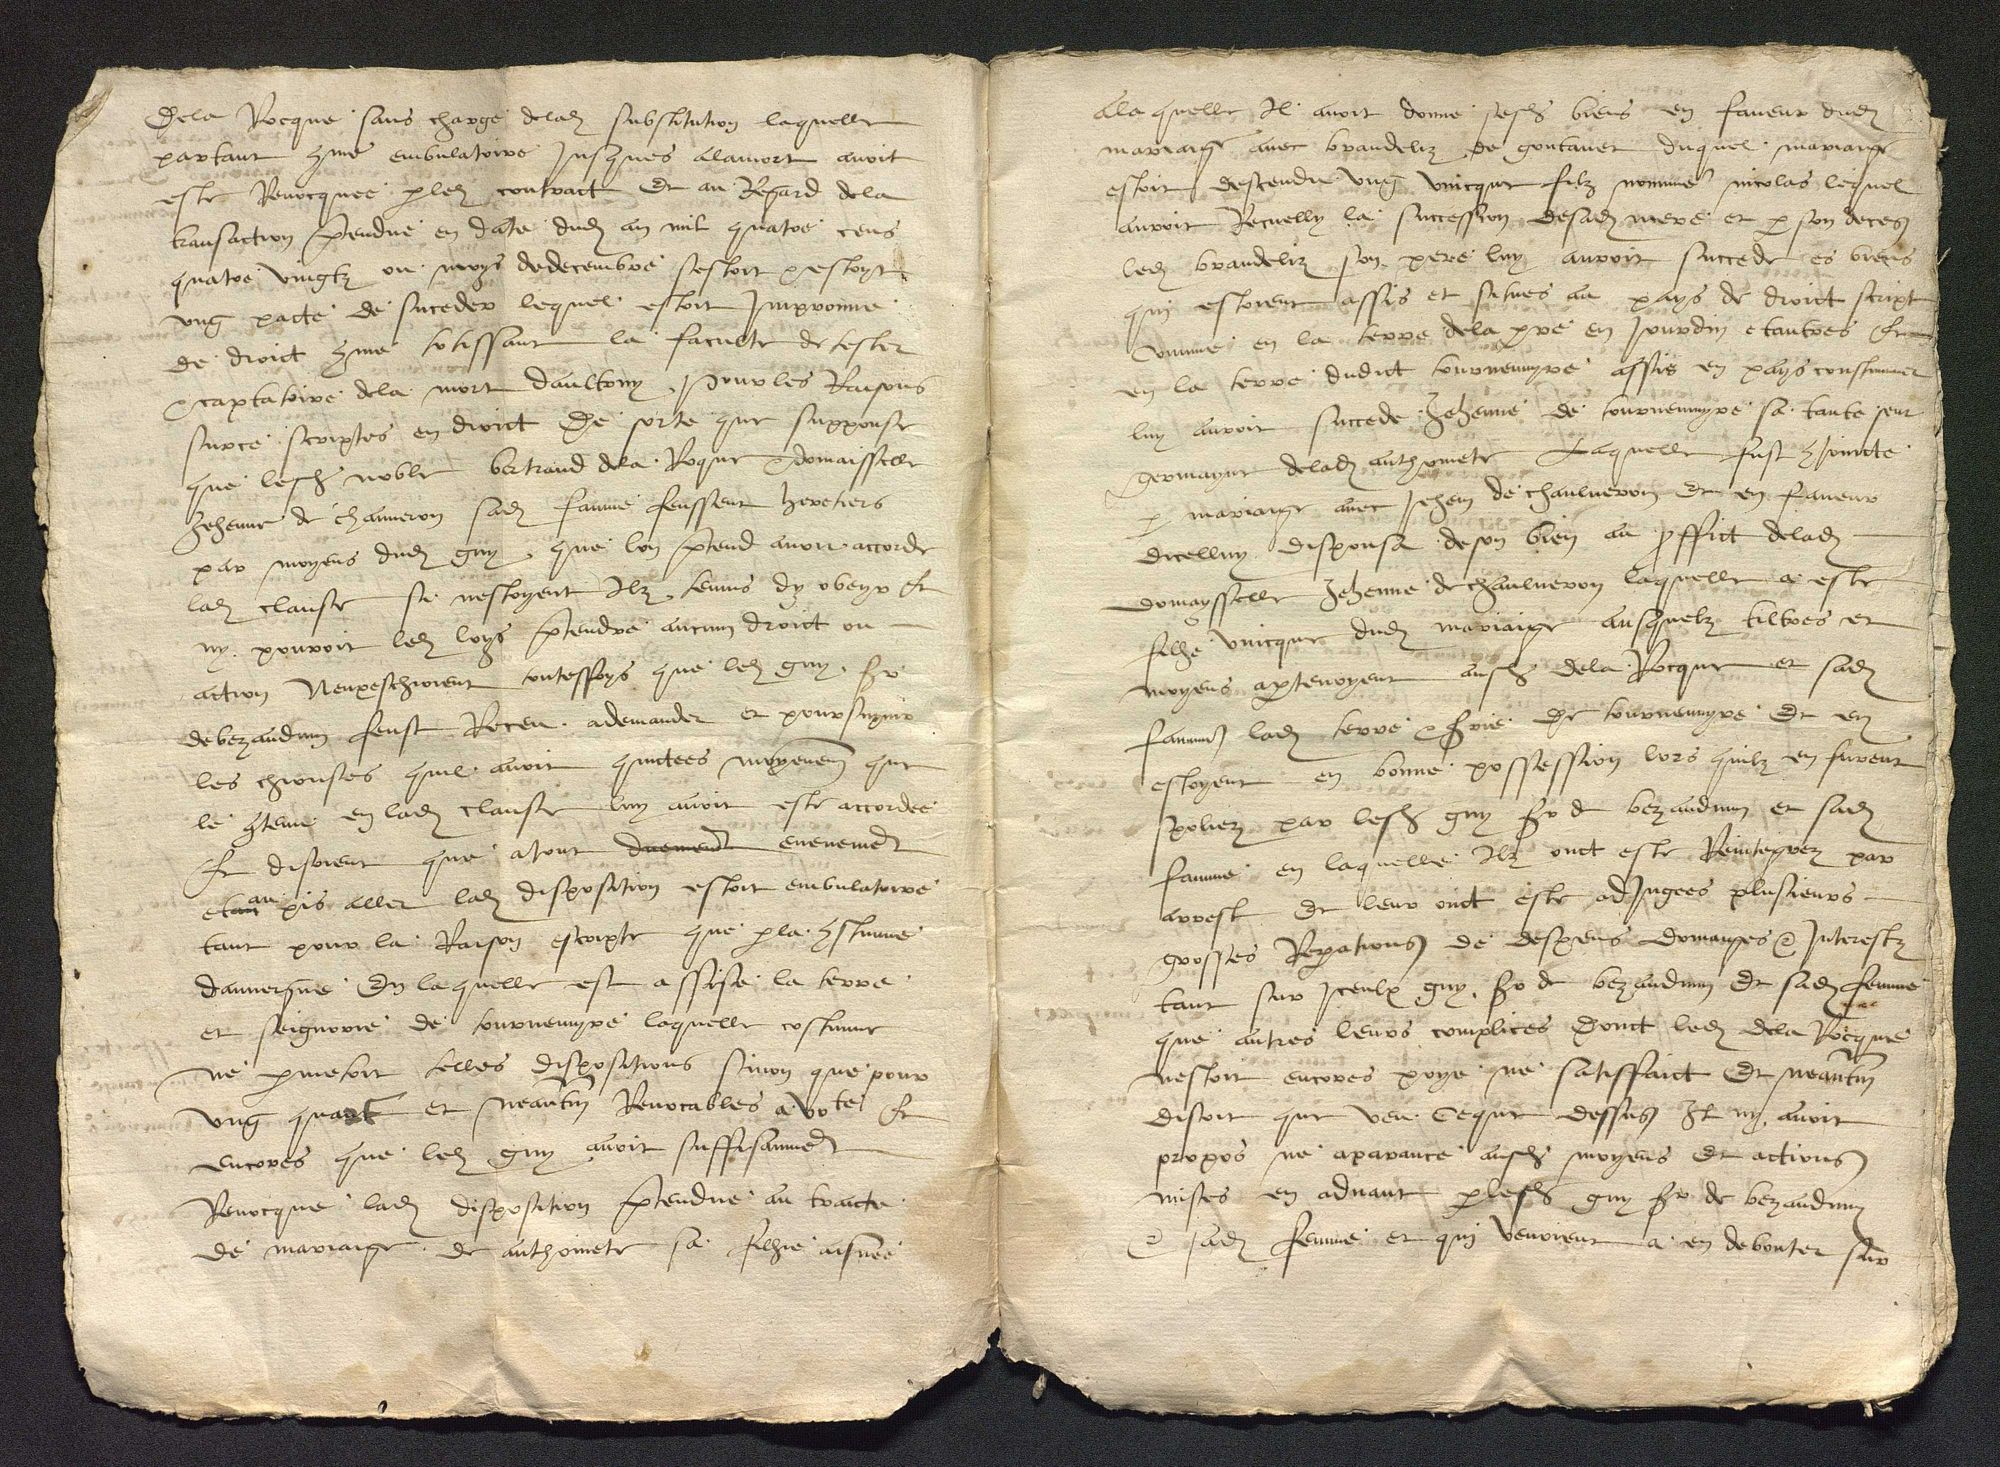 Dela Rocque sans charge delad substitution laquelle
partant cõme embulatoire Jusques alamort avoit
este Revocquee pled contract Et au Regard dela
transaction ptendue en date dud an mil quatre cens
quatre vingtz ou moys dedecembre sestoit & estoyt
ung pacte de suceder lequel estoit Jmprouvue
de droict cõme tolissant la faculte de tester
& captatoire dela mort daultruy, pour les Raisons
surce scriptes en droict De sorte que supponse
que lesd noble bertrand dela Roque & domaiselle
Jehenne de chauveron sad famme feussent heretiers
par moyens dud guy, que lon ptend avoir accorde
lad clause se nestoyent Ilz tenus dy obeyr Et
ny pouvoir led loys ptendre aucun droict ou
action Nenpeschoient toutesfoys que led guy, sr
debezaudun feust Receu ademander et poursuyvir
les chouses quil avoit quictees moyenem que
le cõtenu en lad clause luy avoit este accordee
Et disoient que atout evenemet
au pis aller lad disposition estoit embulatoire
tant pour la Raison escripte que pla costume
dauvergne En laquelle est assise la terre
et seignorie de tournemyre laquelle costume
ne pmetoit telles dispositions sinon que pour
ung quart et neautm Revocables a vote Et
encores que led guy avoit suffisammet
Revocque lad disposition ptendue au traicte
de mariaige de anthoinete sa filhe aisnee
ala quelle Il avoit donne sesd biens en faveur dud
mariaige avec brandeliz de gontaut duquel mariaige
estoit descendu ung unicque filz nomme nicolas lequel
auroit Recuelly la succession desad mere et p son deces
led brandeliz son pere luy auroit succede es biens
qui estoient assis et situes au pays de droict script
Comme en la terre dela pre en Jourdin et autres Et
en la terre dudict tournemyre assis en pays constumier
luy auroit succede Jehenne de tournemyre sa tante seur
germayne delad anthoinete Laquelle fust cjoincte
p mariaige avec Jehan de chaulveron Et en faveur
dicelluy disposa deson bien au pffict delad
domayselle Jehenne de chaulveron laquelle a este
filhe unicque dud mariaige ausquelz tiltres et
moyens aptenoyent ausd dela Rocque et sad
famme lad terre & srie De tournemyre Et en
estoyent en bonne possession lors quilz en furent
spoliez par lesd guy sr de bezaudun et sad
famme en laquelle Ilz onct este Reintegrez par
arrest Et leur onct este adJugees plusieurs
grosses Repations de despens domaiges & Interestz
tant sur Iceulx guy, sr de bezaudun Et sad femme
que autres leurs complices Donct led dela Rocque
nestoit encores poye ne satisffaict Et neautm
disoit que veu Ceque dessus Il ny avoit
propos ne aparance ausd moyens Et actions
mises en advant plesd guy sr de bezaudun
& sad femme et qui venoient a en debouter sur